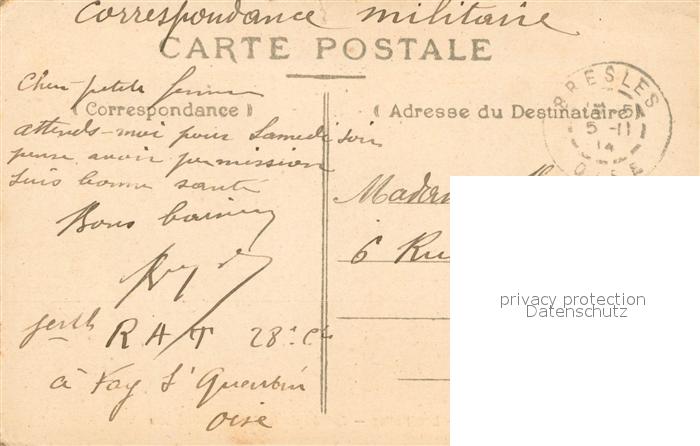 Correspondance militaire
CARTE POSTALE
Cher petite femme
( Correspondance )
attends-moi pour Samedi soir
pense avoir permission
suis bonne santé
Bons baisers
( Adresse du Destinataire )
BRESLES
5 -11
14
OISE
6 Ru
privacy protection
Datenschutz
R A T 28e Cie
à Fay St Quentin
Oise